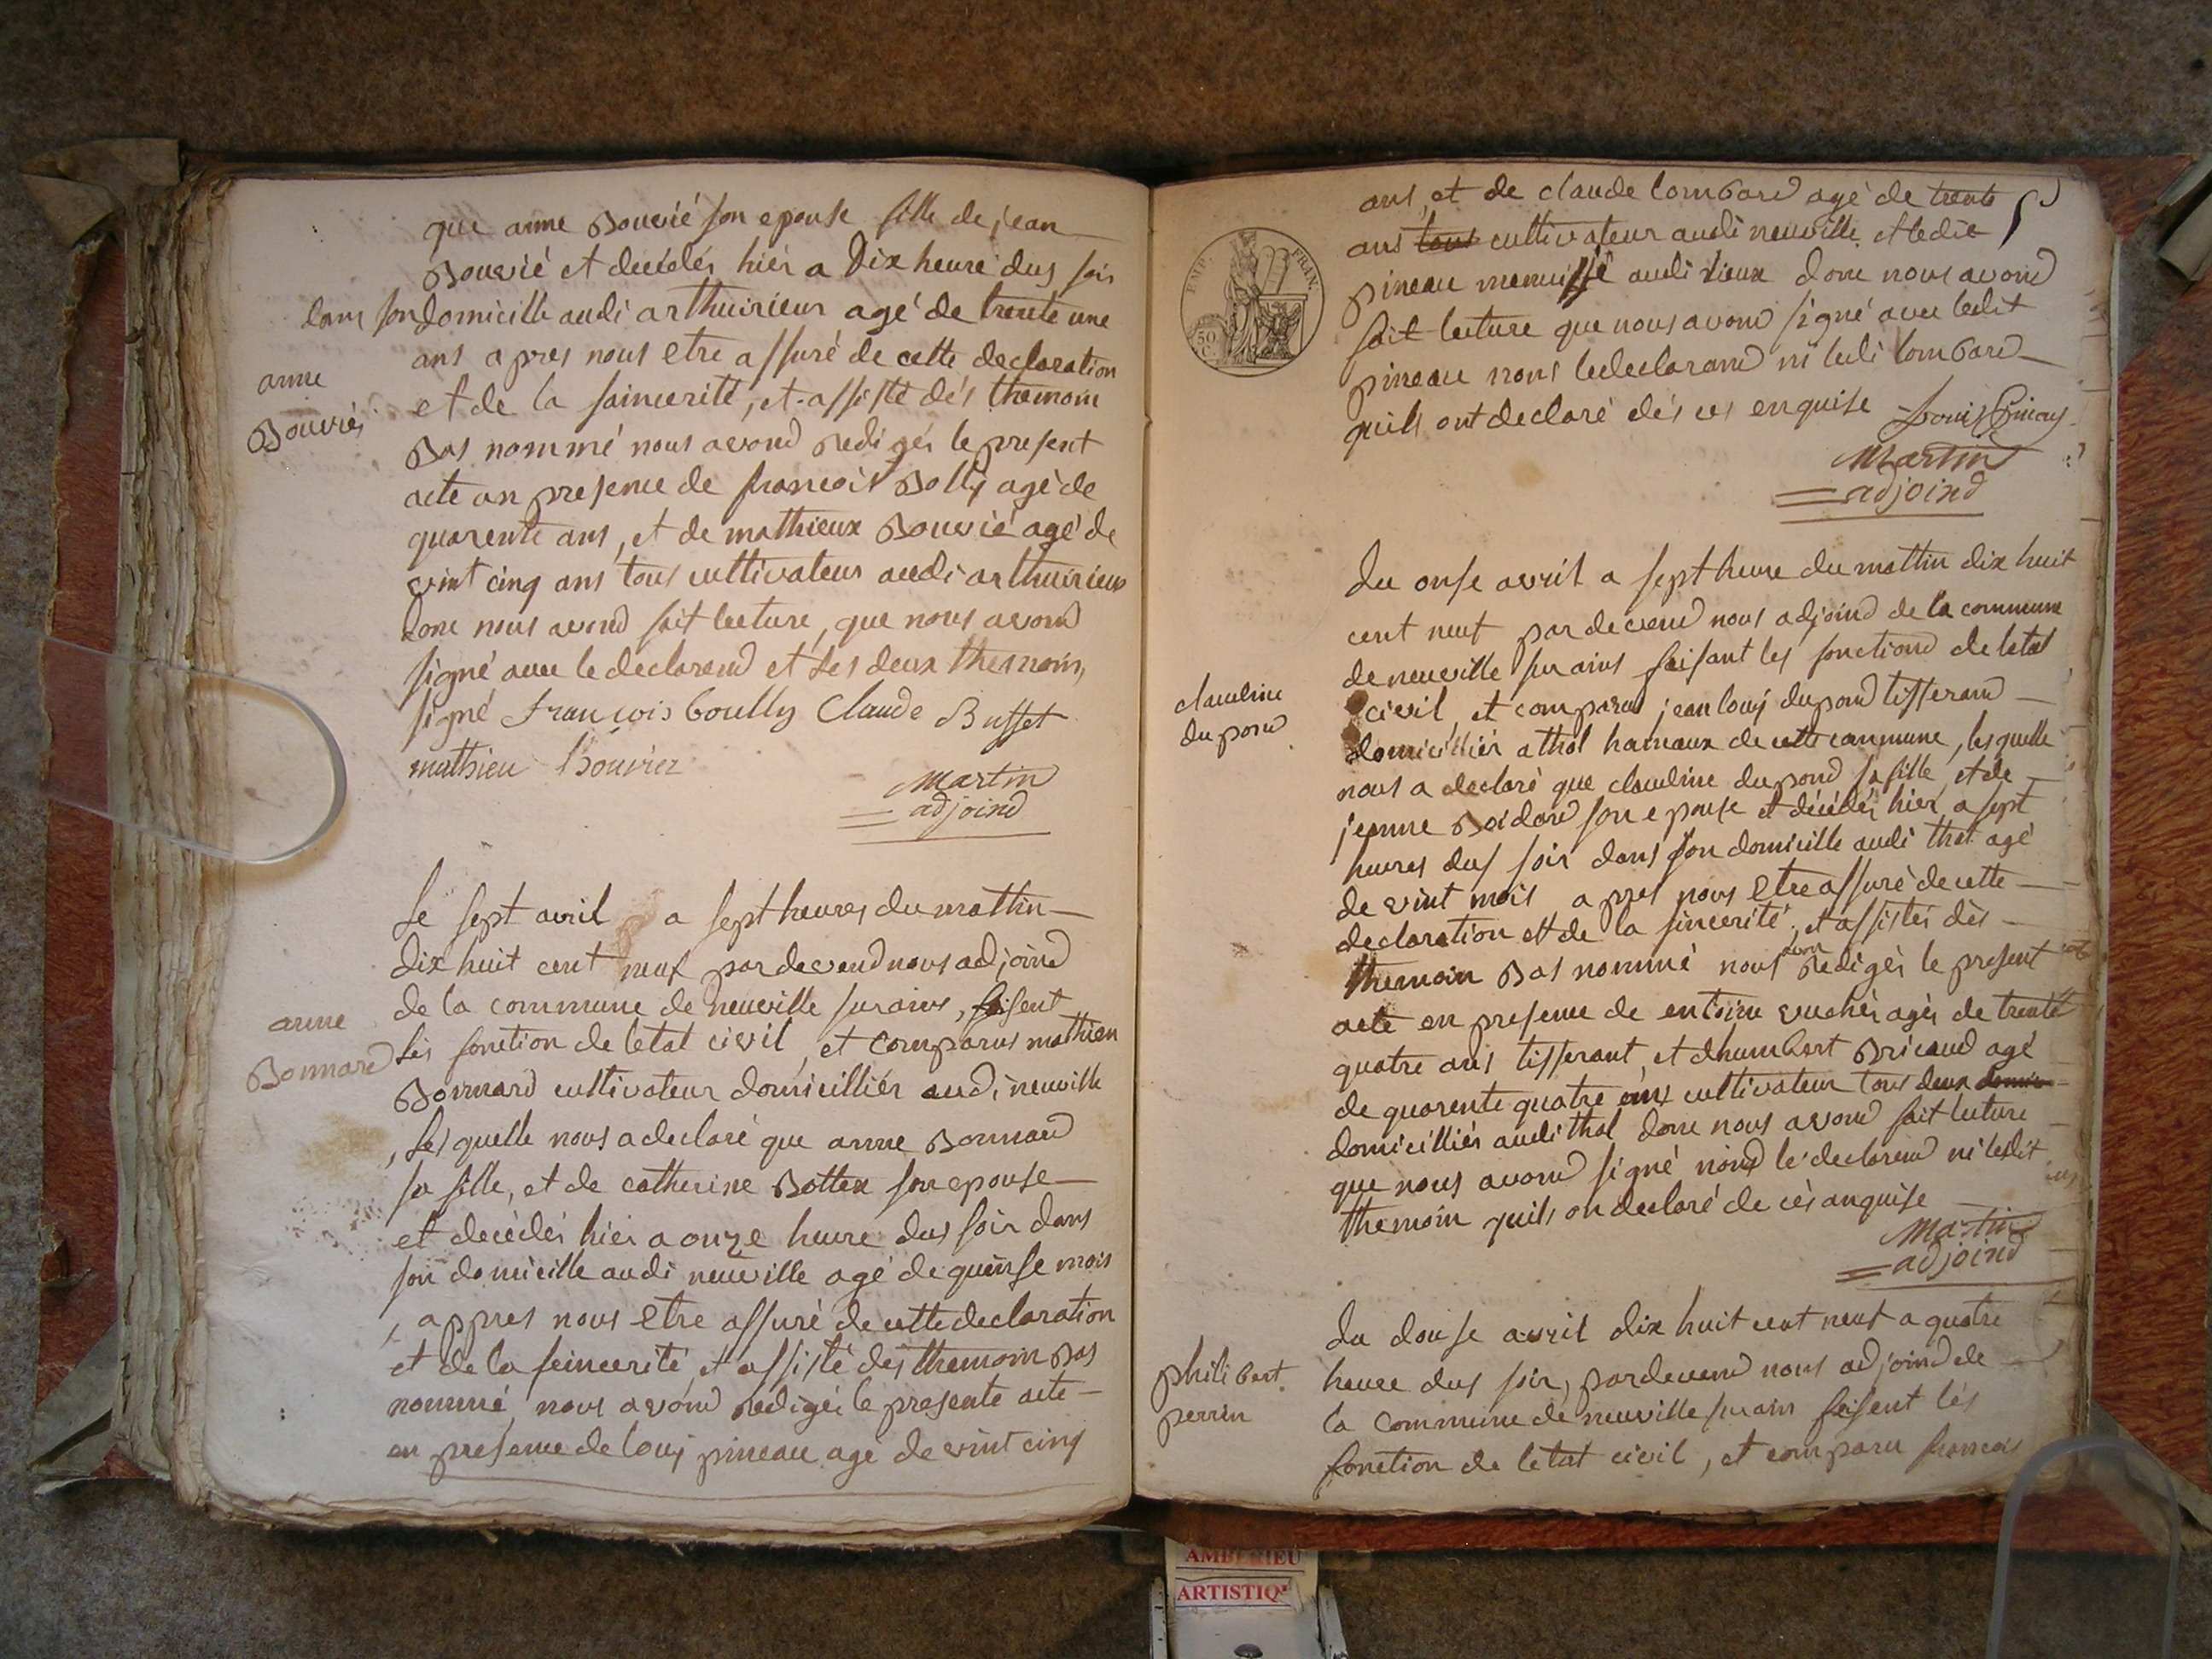 que anne Bouvié son epouse fille de jean
Bouvié et decédés hiér a Dix heure dus soir
dans son domicille audi arthuirieux agé de trente une
ans apres nous etre assuré de cette declaration
anne
Bouviés
et de la saincerité, et assisté dés themoin
Bas nommé nous avond redigés le present
acte an presence de francois Bolly agé de
quarente ans, et de mathieux Bouvié agé de
vint cinq ans tous cultivateur audi arthuirieux
donc nous avond fait lecture, que nous avond
signé avec le declarend et les deux themoin,
signé francois boully Claude Buffet
mathieu Bouvier
Martin
adjoind
Le sept avril a sept heures du mattin
dix huit cent neuf par devend nous adjoind
de la commune de neuville sur ains, faisent
anne
Bonnard
lés fonction de letat civil, et comparus mathieu
Bonnard cultivateur domicilliér audi neuville
, lesquelle nous a declaré que anne Bonnard
sa fille, et de catherine Bottex son epouse
et decédés hiér a onze heure dus soir dans
son domicille audi neuville agé de quinse mois
, appres nous etre assuré de cette declaration
et de la seincerité et assisté dés themoin Bas
nommé nous avond redigés le presente acte
en presence de louis pineau agé de vint cinq
ans, et de claude lombard agé de trente
ans tous cultivateur audi neuville, et ledit
pineau menuissié audi lieux donc nous avond
fait lecture que nous avond signé avec ledit
pineau nons ledeclarand ni ledi lombard
quils ont declaré dés ces enquise Louis Pineay
Martin
adjoind
EMP. FRAN.
50
C.
du onse avril a sept heure du mattin dix huit
cent neuf par devend nous adjoind de la commune
de neuville sur ains faisant les fonctiond de letat
claudine
dupond
civil, et comparus jean louis dupond tisserand
domicilliér a thol hameaux de cette commune, lesquelle
nous a declaré que claudine dupond sa fille, et de
jeanne Boidard son epouse et décédés hier a sept
heures dus soir dans son domicille audi thol agé
de vint mois apres nous etre assuré de cette
declaration et de la sincerité, et assistés dés
themoin Bas nommé nous avon redigés le present
acte en presence de entoine vuchér agés de trente
quatre ans tisserant, et dhumbert Bricaud agé
de quarente quatre ans cultivateur tous deux
domicilliés audi thol donc nous avond fait lecture
que nous avond signé nond le declarend ni lesdit
themoin quils on declaré de cés anquise
Martin
adjoind
du douse avril dix huit cent neuf a quatre
philibert
perrin
heure dus soir, pardevend nous adjoind de
la commune de neuville sur ain faisent lés
fonction de letat civil, et comparu francois
AMBERIEU
ARTISTIQ